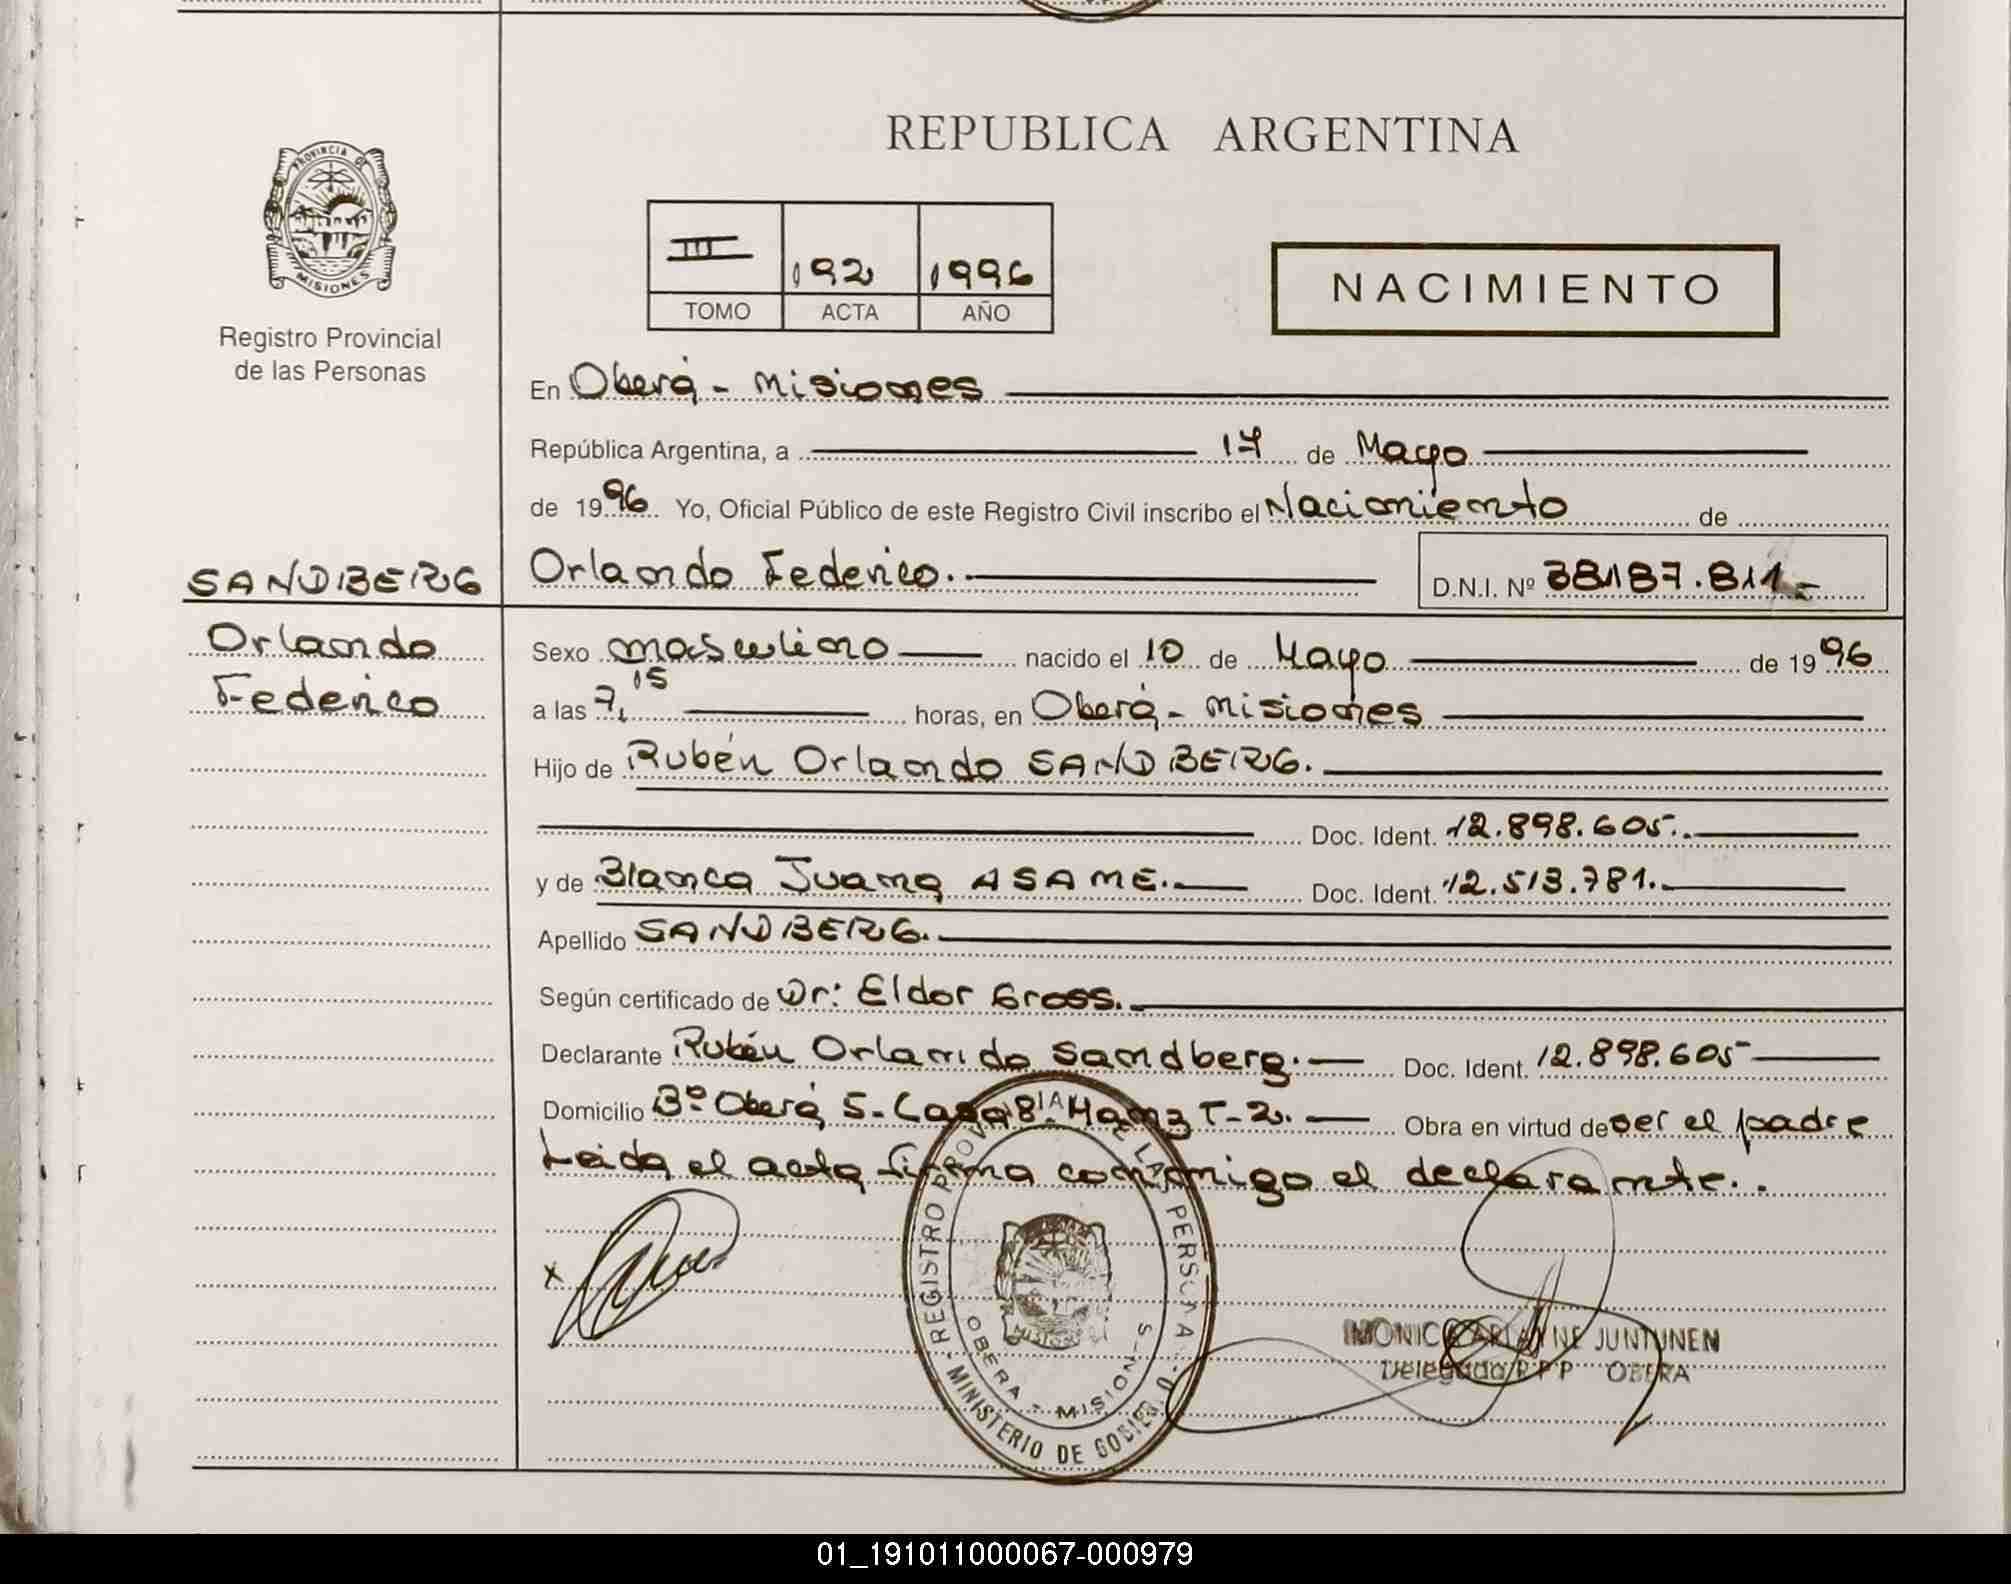 REPUBLICA ARGENTINA
PROVINCIA DE
MISIONES
Registro Provincial
de las Personas
III 192 1996
TOMO ACTA AÑO
NACIMIENTO
En Oberá - Misiones
República Argentina, a 17 de Mayo
de 1996 Yo, Oficial Público de este Registro Civil inscribo el Nacimiento de
SANDBERG Orlando Federico. D.N.I. Nº 38187.811.-
Orlando Sexo masculino nacido el 10 de Mayo de 1996
Federico a las 7,15 horas, en Oberá - Misiones
Hijo de Rubén Orlando SANDBERG.
Doc. Ident. 12.898.605.
y de Blanca Juana ASAME. Doc. Ident. 12.513.781.
Apellido SANDBERG.
Según certificado de Dr: Eldor Gross.
Declarante Rubén Orlando Sandberg. Doc. Ident. 12.898.605
Domicilio Bº Oberá 5 - Casa 8 Manz T-2. Obra en virtud de ser el padre
Leida el acta firma conmigo el declarante..
x
REGISTRO DE LAS PERSONAS
MINISTERIO DE GOBIERNO
OBERA - MISIONES
MONICA JUNTUNEN
Delegada OBERA
01_191011000067-000979